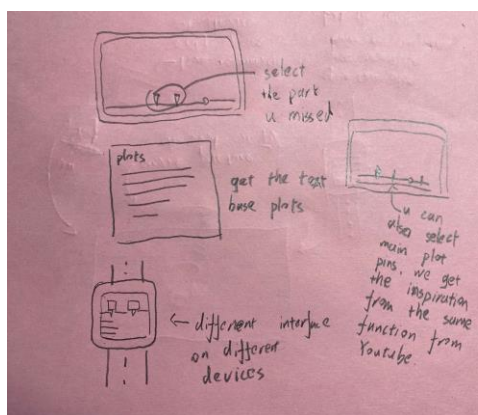 select
the part
u missed
plots
get the text
base plots
u can
also select
main plot
pins. we get
the inspiration
from the same
function from
Youtube.
different interface
on different
devices